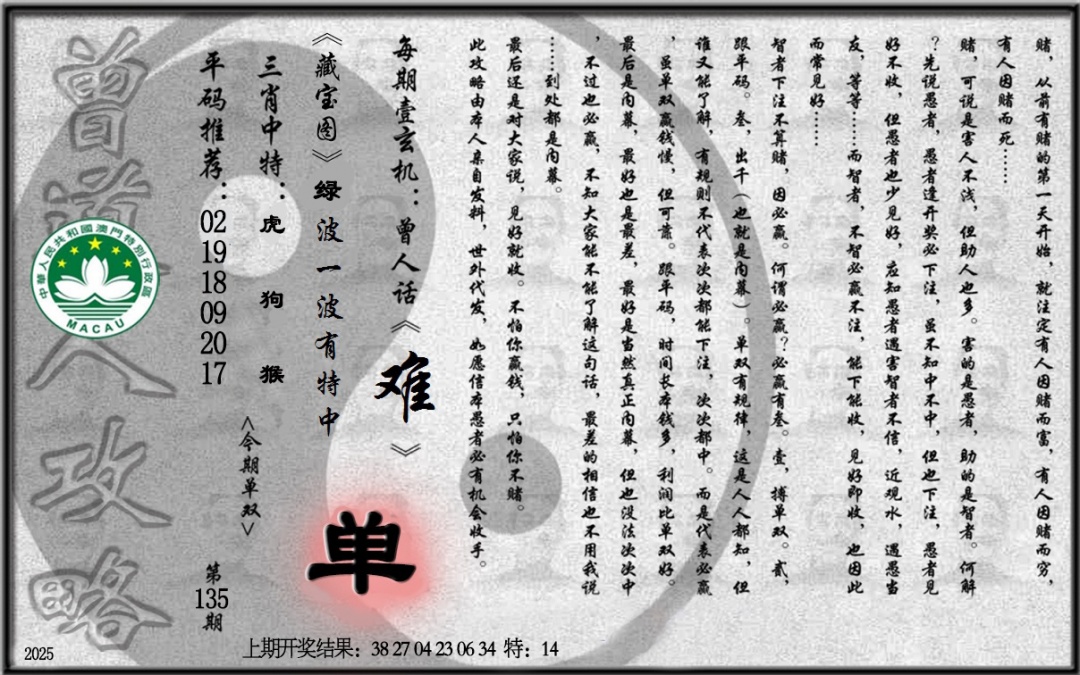 赌，从前有赌的第一天开始，就注定有人因赌而富，有人因赌而穷，
有人因赌而死……
赌，可说是害人不浅，但助人也多。害的是愚者，助的是智者。何解
？先说愚者，愚者逢开奖必下注，虽不知中不中，但也下注，愚者见
好不收，但愚者也少见好，应知愚者遇害智者不信，近观水，遇愚当
友，等等……而智者，不智必赢不注，能下能收，见好即收，也因此
而常见好……
智者下注不算赌，因必赢。何谓必赢？必赢有叁。壹，搏单双。贰，
跟平码。叁，出千（也就是内幕）。单双有规律，这是人人都知，但
谁又能了解，有规则不代表次次都能下注，次次都中。而是代表必赢
，虽单双赢钱慢，但可靠。跟平码，时间长本钱多，利润比单双好。
最后是内幕，最好也是最差，最好是当然真正内幕，但也没法次次中
，不过也必赢，不知大家能不能了解这句话，最差的相信也不用我说
……到处都是内幕。
最后还是对大家说，见好就收。不怕你赢钱，只怕你不赌。
此攻略由本人亲自发料，世外代发，如愿信本愚者必有机会收手。
每期壹玄机：曾人话《难》
《藏宝图》绿波一波有特中
单
三肖中特：虎 狗 猴
<今期单双>
平码推荐：02 19 18 09 20 17
第135期
曾道人攻略
中華人民共和國澳門特別行政區
MACAU
2025
上期开奖结果：38 27 04 23 06 34 特：14